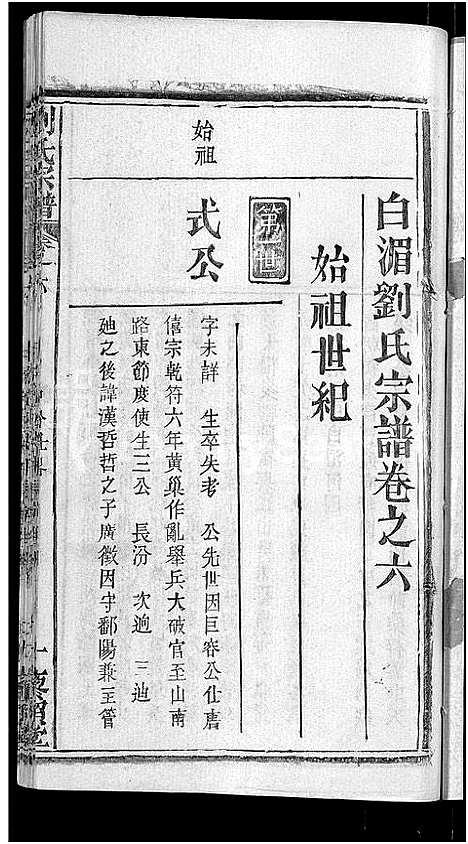 白湄劉氏宗譜卷之六
始祖世紀
第一世
始祖
式公
字未詳　生卒失考　公先世因巨容公仕唐
僖宗乾符六年黃巢作亂舉兵大破官至山南
路東節度使生三公　長汾　次逈　三迪
迪之後諱漢哲哲之子廣徵因守鄱陽兼主管
劉氏宗譜
卷之六